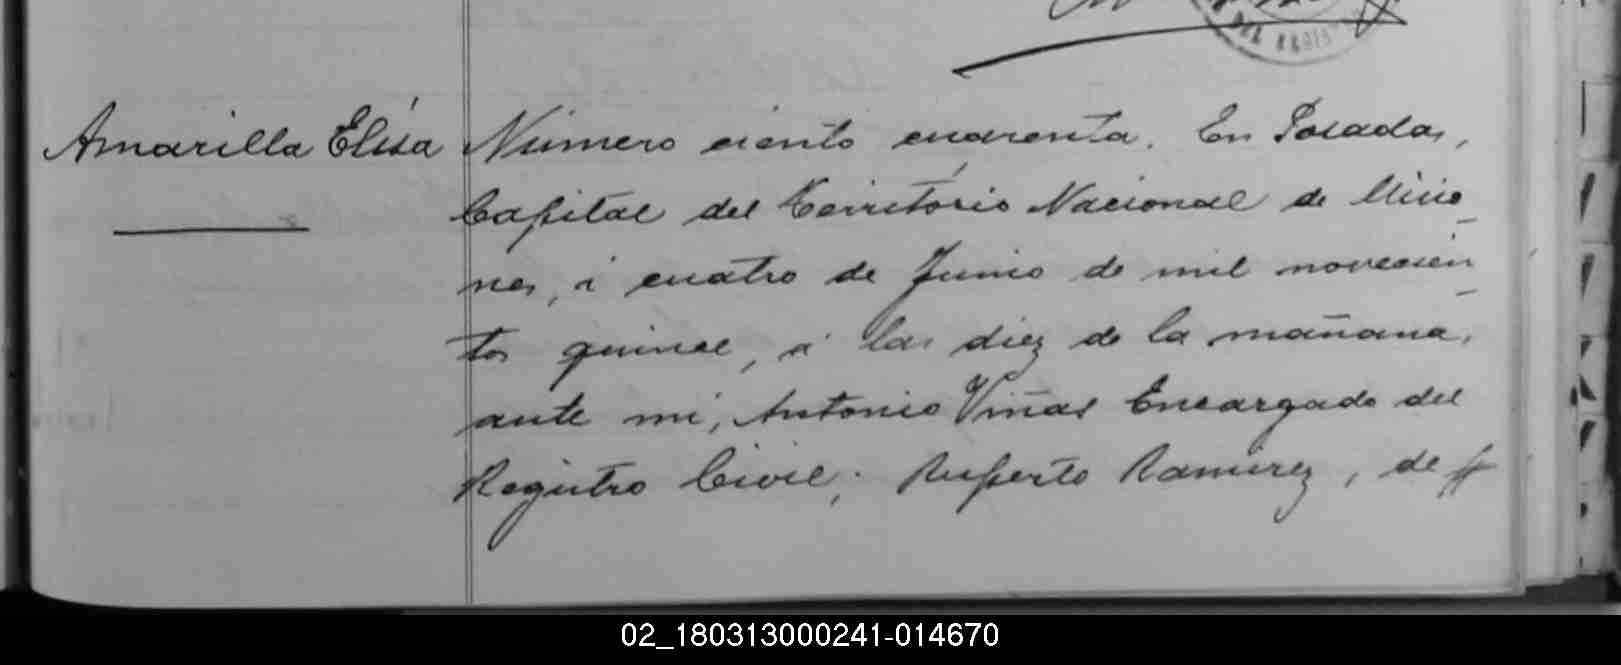 DEL REGIS
Amarilla Elisa
Número ciento cuarenta. En Posadas,
Capital del Territorio Nacional de Misio_
nes, á cuatro de Junio de mil novecien_
tos quince, á las diez de la mañana,
ante mi, Antonio Viñas Encargado del
Registro Civil; Ruperto Ramirez, de
02_180313000241-014670